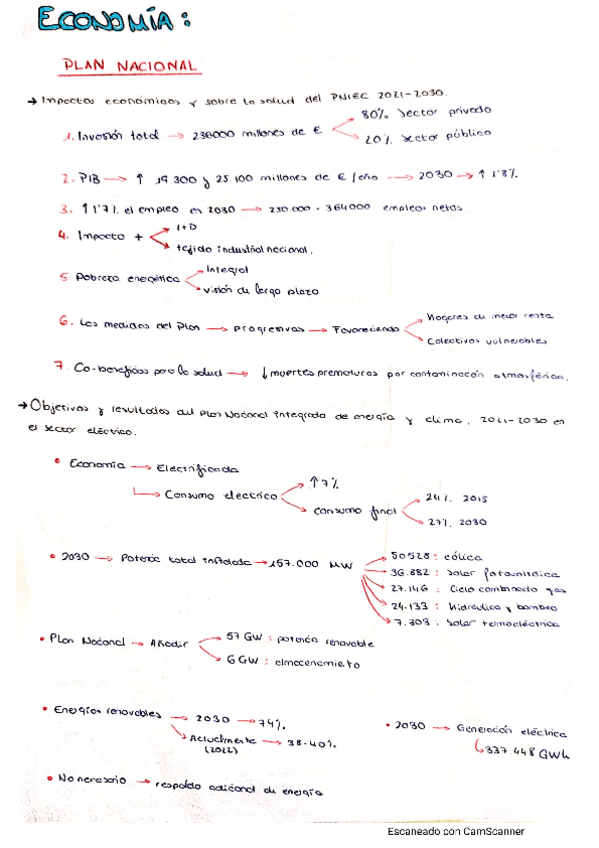 ECONOMÍA:
PLAN NACIONAL
→ Impactos económicos y sobre la salud del PNIEC 2021-2030.
1. Inversión total → 236000 millones de €
80% sector privado
20% sector público
2. PIB → ↑ 19 300 y 25.100 millones de €/año → 2030 → ↑ 1'8%
3. ↑ 1'7% el empleo en 2030 → 250.000 - 364000 empleos netos
4. Impacto +
I+D
tejido industrial nacional.
5 Pobreza energética
Integral
visión de largo plazo
6. Las medidas del Plan → progresivas → Favoreciendo
Hogares de menor renta
Colectivos vulnerables
7. Co-beneficios para la salud → ↓ muertes prematuras por contaminación atmosférica.
→ Objetivos y resultados del Plan Nacional integrado de energía y clima, 2021-2030 en
el sector eléctrico.
• Economía → Electrificada
→ Consumo electrico
↑ 7%
consumo final
24% 2015
27% 2030
• 2030 → Potencia total instalada → 157.000 MW
50528: eólica
36.882: solar fotovoltaica
27.146: Ciclo combinado gas
24.133: hidráulica y bombeo
7.303: solar termoeléctrica
• Plan Nacional → Añadir
57 GW: potencia renovable
6 GW: almacenamiento
• Energías renovables → 2030 → 74%
Actualmente → 38-40%
(2022)
• 2030 → Generación eléctrica
337 448 GWh
• No necesario → respaldo adicional de energía
Escaneado con CamScanner